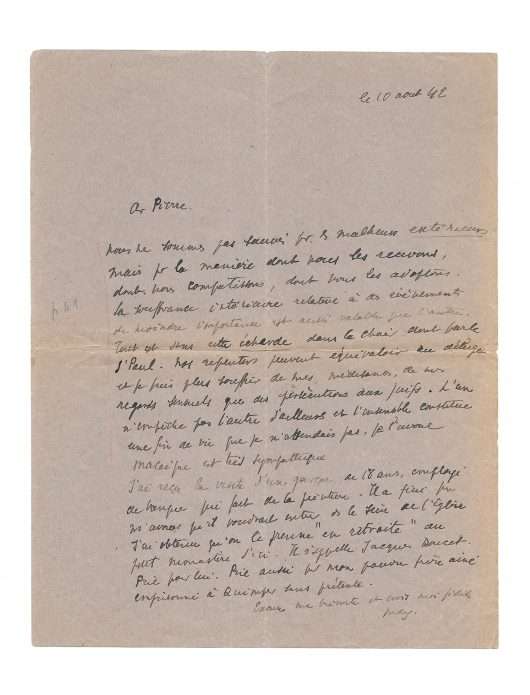 le 10 aout 42
Cher Pierre.
nous ne sommes pas sauvés par les malheurs extérieurs
mais par la manière dont nous les recevons,
dont nous compatissons, dont nous les adoptons.
la souffrance intérieure relative à des événements
de moindre importance est aussi valable que l'autre.
Tout est dans cette écharde dans la chair dont parle
St Paul. nos repentirs peuvent équivaloir au déluge
et je puis plus souffrir de mes médisances, de nos
regards sensuels que des persécutions aux juifs. L'un
n'empêche pas l'autre d'ailleurs et l'ensemble constitue
une fin de vie que je n'attendais pas, je l'avoue
est très sympathique
J'ai reçu la visite d'un garçon de 18 ans, employé
de banque qui fait de la peinture. Il a fini par
ns avouer qu'il voudrait entrer ds le sein de l'Eglise
J'ai obtenu qu'on le prenne "en retraite" au
petit monastère d'ici. Il s'appelle Jacques Doucet.
Prie pour lui. Prie aussi pr mon pauvre frère aîné
emprisonné à Quimper sans prétexte.
Excuse ma et crois moi fidèle
Max.